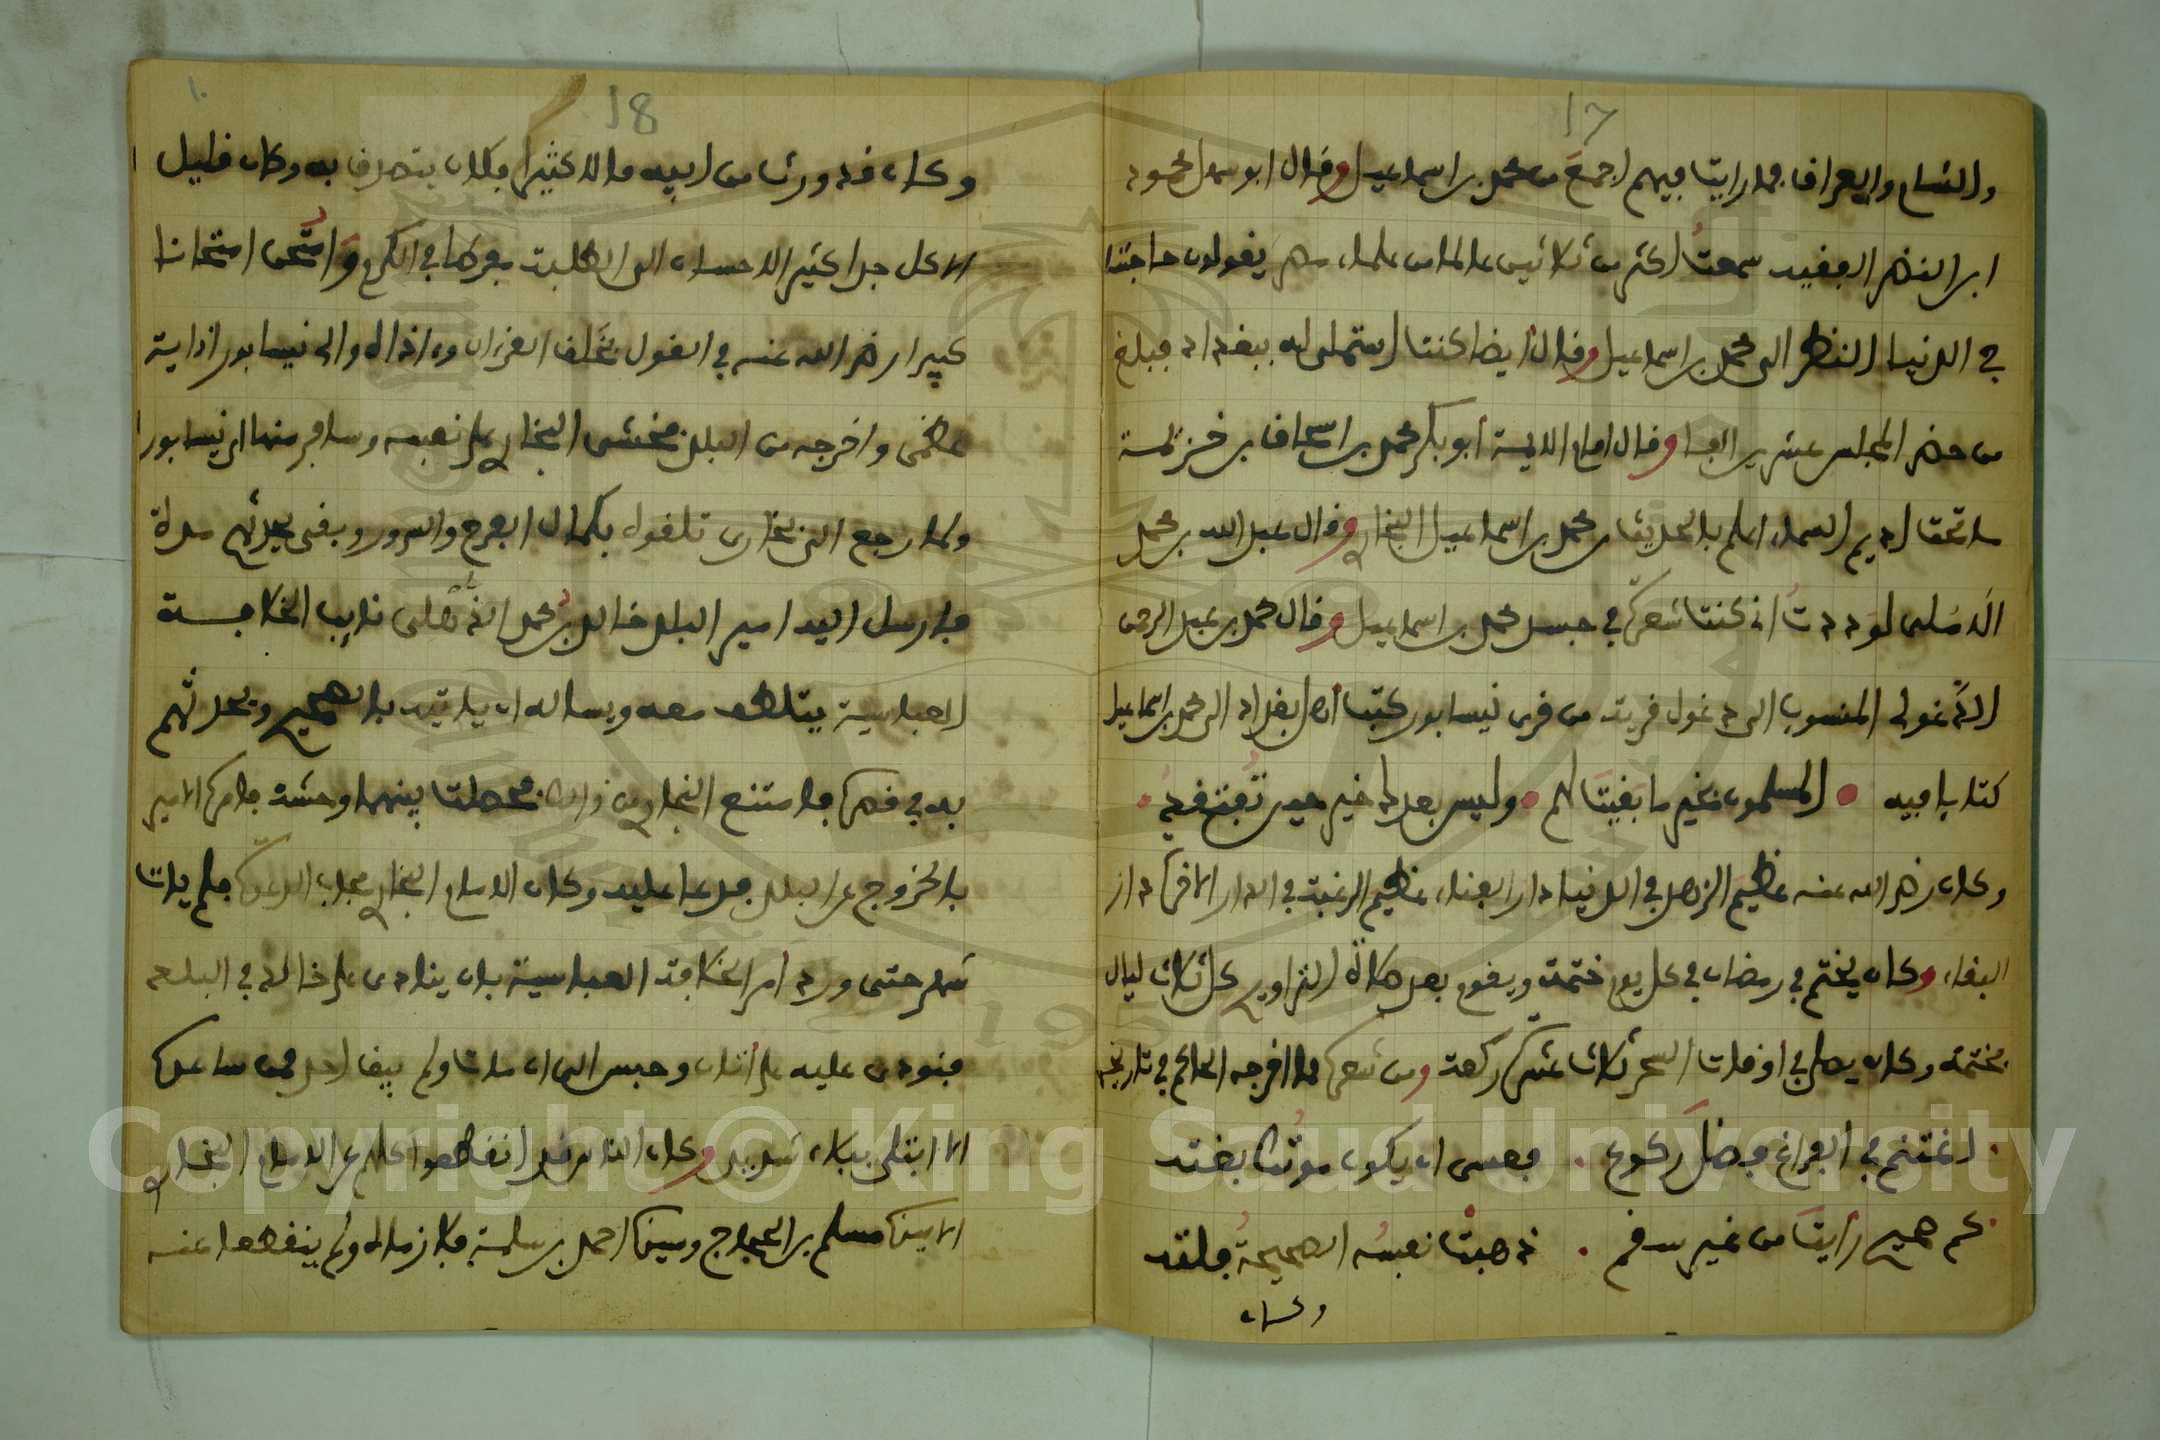 17
والشام والعراق فما رايت فيهم اجمع من محمد بن اسماعيل وقال ابو سهل محمود
ابن النضر الفقيه سمعت اكثر من ثلاثين عالما من علماء مصر يقولون حاجتنا
في الدنيا النظر الى محمد بن اسماعيل وقال ايضا كنت استملى له ببغداد فبلغ
من حضر المجلس عشرين الفا وقال امام الايمة ابو بكر محمد بن اسحاق بن خزيمة
ما تحت اديم السماء اعلم بالحديث من محمد بن اسماعيل البخاري وقال عبد الله بن محمد
لوددت اني كنت شعرة في جسد محمد بن اسماعيل وقال محمد بن عبد الرحمن
الدغولي المنسوب الى دغول قرية من قرى نيسابور كتب اهل بغداد الى محمد بن اسماعيل
كتابا فيه المسلمون بخير ما بقيت لهم وليس بعدك خير حين تفتقد
وكان رضي الله عنه عظيم الزهد في الدنيا دار الفناء عظيم الرغبة في الدار الاخرة دار
البقاء وكان يختم في رمضان في كل يوم ختمة ويقوم بعد صلاة التراويح كل ثلاث ليال
بختمة وكان يصلي في اوقات السحر ثلاث عشرة ركعة ومن شعره مما اخرجه الحاكم في تاريخه
اغتنم في الفراغ فضل ركوع فعسى ان يكون موتك بغته
كم صحيح رايت من غير سقم ذهبت نفسه الصحيحة فلته
وكان
18
١٠
وكان قد ورث من ابيه مالا كثيرا فكان يتصدق به وكان قليل
الاكل جدا كثير الاحسان الى الطلبة مفرطا في الكرم وامتحن امتحانا
كبيرا رضي الله عنه في القول بخلق القرءان وءاذاه والي نيسابور اذاية
عظمى واخرجه من البلد فخشى البخاري على نفسه وسافر منها الى نيسابور
ولما رجع الى بخارى تلقوه بكمال الفرح والسرور وبقى يحدثهم مدة
فارسل اليه امير البلد خالد بن محمد الذهلى نايب الخلافة
العباسية يتلطف معه ويساله ان ياتيه بالصحيح ويحدثهم
به في قصره فامتنع البخاري من ذلك فحصلت بينهما وحشة فامره الامير
بالخروج عن البلد فدعا عليه وكان الامام البخاري مجاب الدعوة فلم يات
شهر حتى ورد امر الخلافة العباسية بان ينادى على خالد في البلد
فنودى عليه على اتان وحبس الى ان مات ولم يبق احد ممن ساعده
الا ابتلى ببلاء شديد وكان الناس قد انقطعوا كلهم عن الامام البخاري
الا سيدنا مسلم بن الحجاج وسيدنا احمد بن سلمة فلازماه ولم ينقطعا عنه